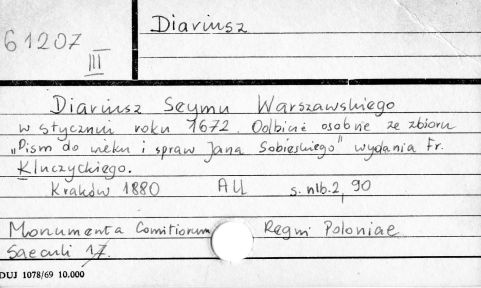 61207
III
Diariusz
Diariusz Seymu Warszawskiego
w styczniu roku 1672. Odbicie osobne ze zbioru
„Pism do wieku i spraw Jana Sobieskiego" wydania Fr.
Kluczyckiego.
Kraków 1880 AU s. nlb. 2, 90
Monumenta Comitiorum Regni Poloniae
Saeculi 17.
DUJ 1078/69 10.000